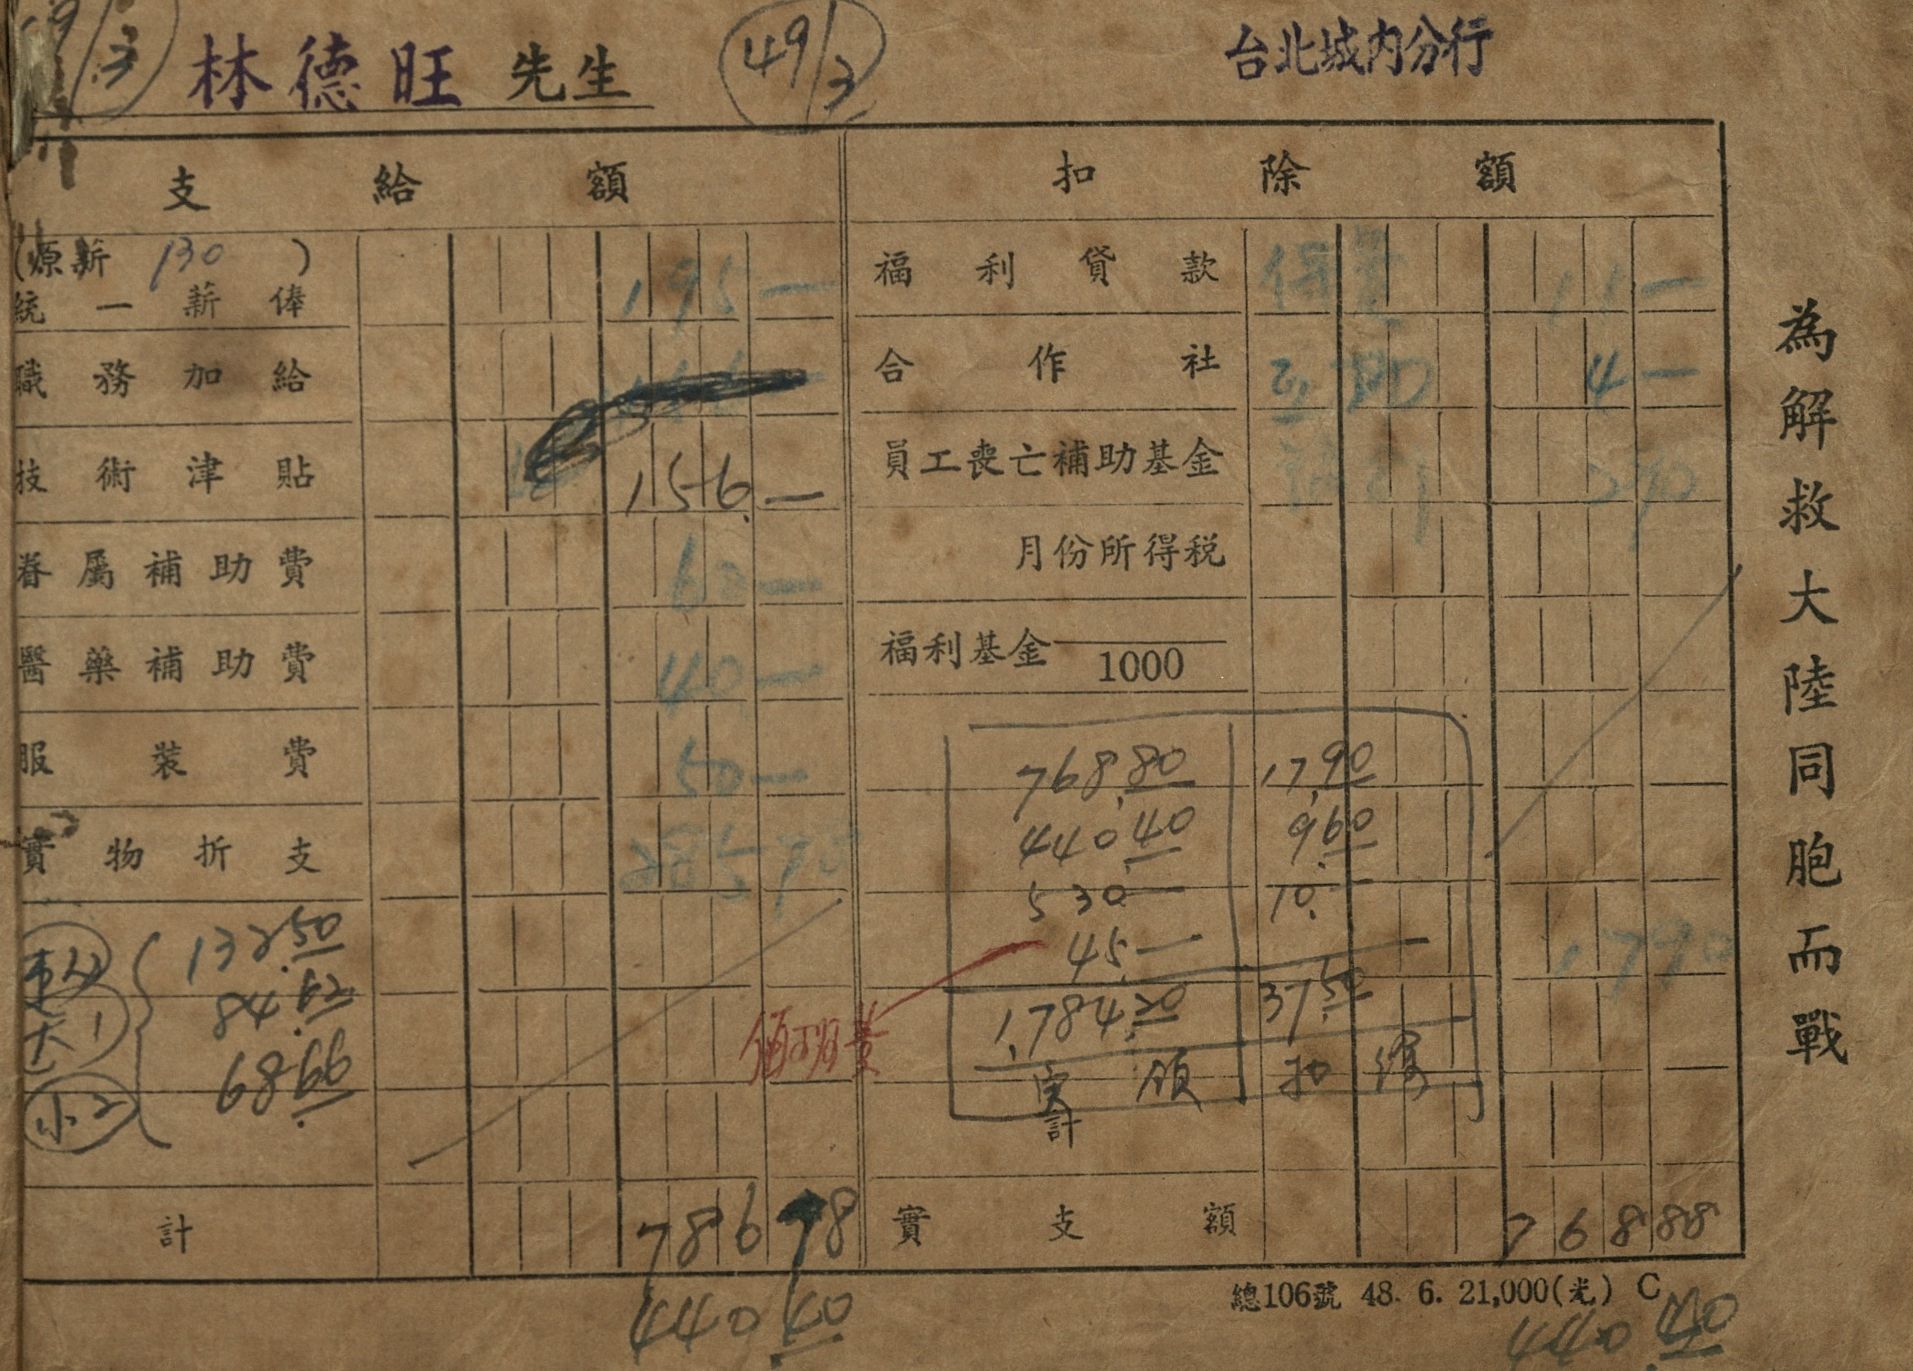 林德旺先生
49/3
台北城内分行
支給額
扣除額
(原薪 130 )
統一薪俸 195—
福利貸款 11—
職務加給
合作社 互助 4—
技術津貼 156.—
員工喪亡補助基金 290
眷屬補助費 60—
月份所得稅
醫藥補助費 40—
福利基金 1000
服裝費 50—
實物折支
768.80 17.90
440.40 9.60
530.— 10.—
45.—
1,784.20 37.50
実領 扣繳
計
1790
132.50
大1 84.62
小2 68.66
計 786 78
實支額 768 88
440.40
總106號 48. 6. 21,000(光) C
440.40
為解救大陸同胞而戰